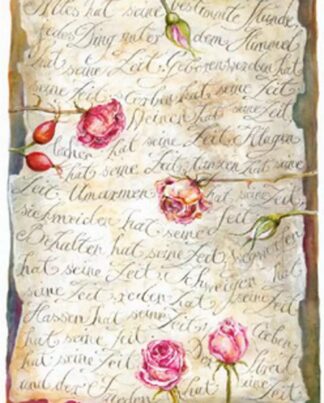 Alles hat seine bestimmte Stunde,
jedes Ding unter dem Himmel
hat seine Zeit. Geboren werden hat
seine Zeit, sterben hat seine Zeit
Weinen hat seine Zeit, Klagen
lachen hat seine Zeit,
hat seine Zeit, tanzen hat seine
Zeit, Umarmen hat seine Zeit,
sich meiden hat seine Zeit
Behalten hat seine Zeit, wegwerfen
hat seine Zeit, Schweigen hat
seine Zeit reden hat seine Zeit
Hassen hat seine Zeit, Lieben
hat seine Zeit Der Streit
und der Frieden hat seine Zeit.